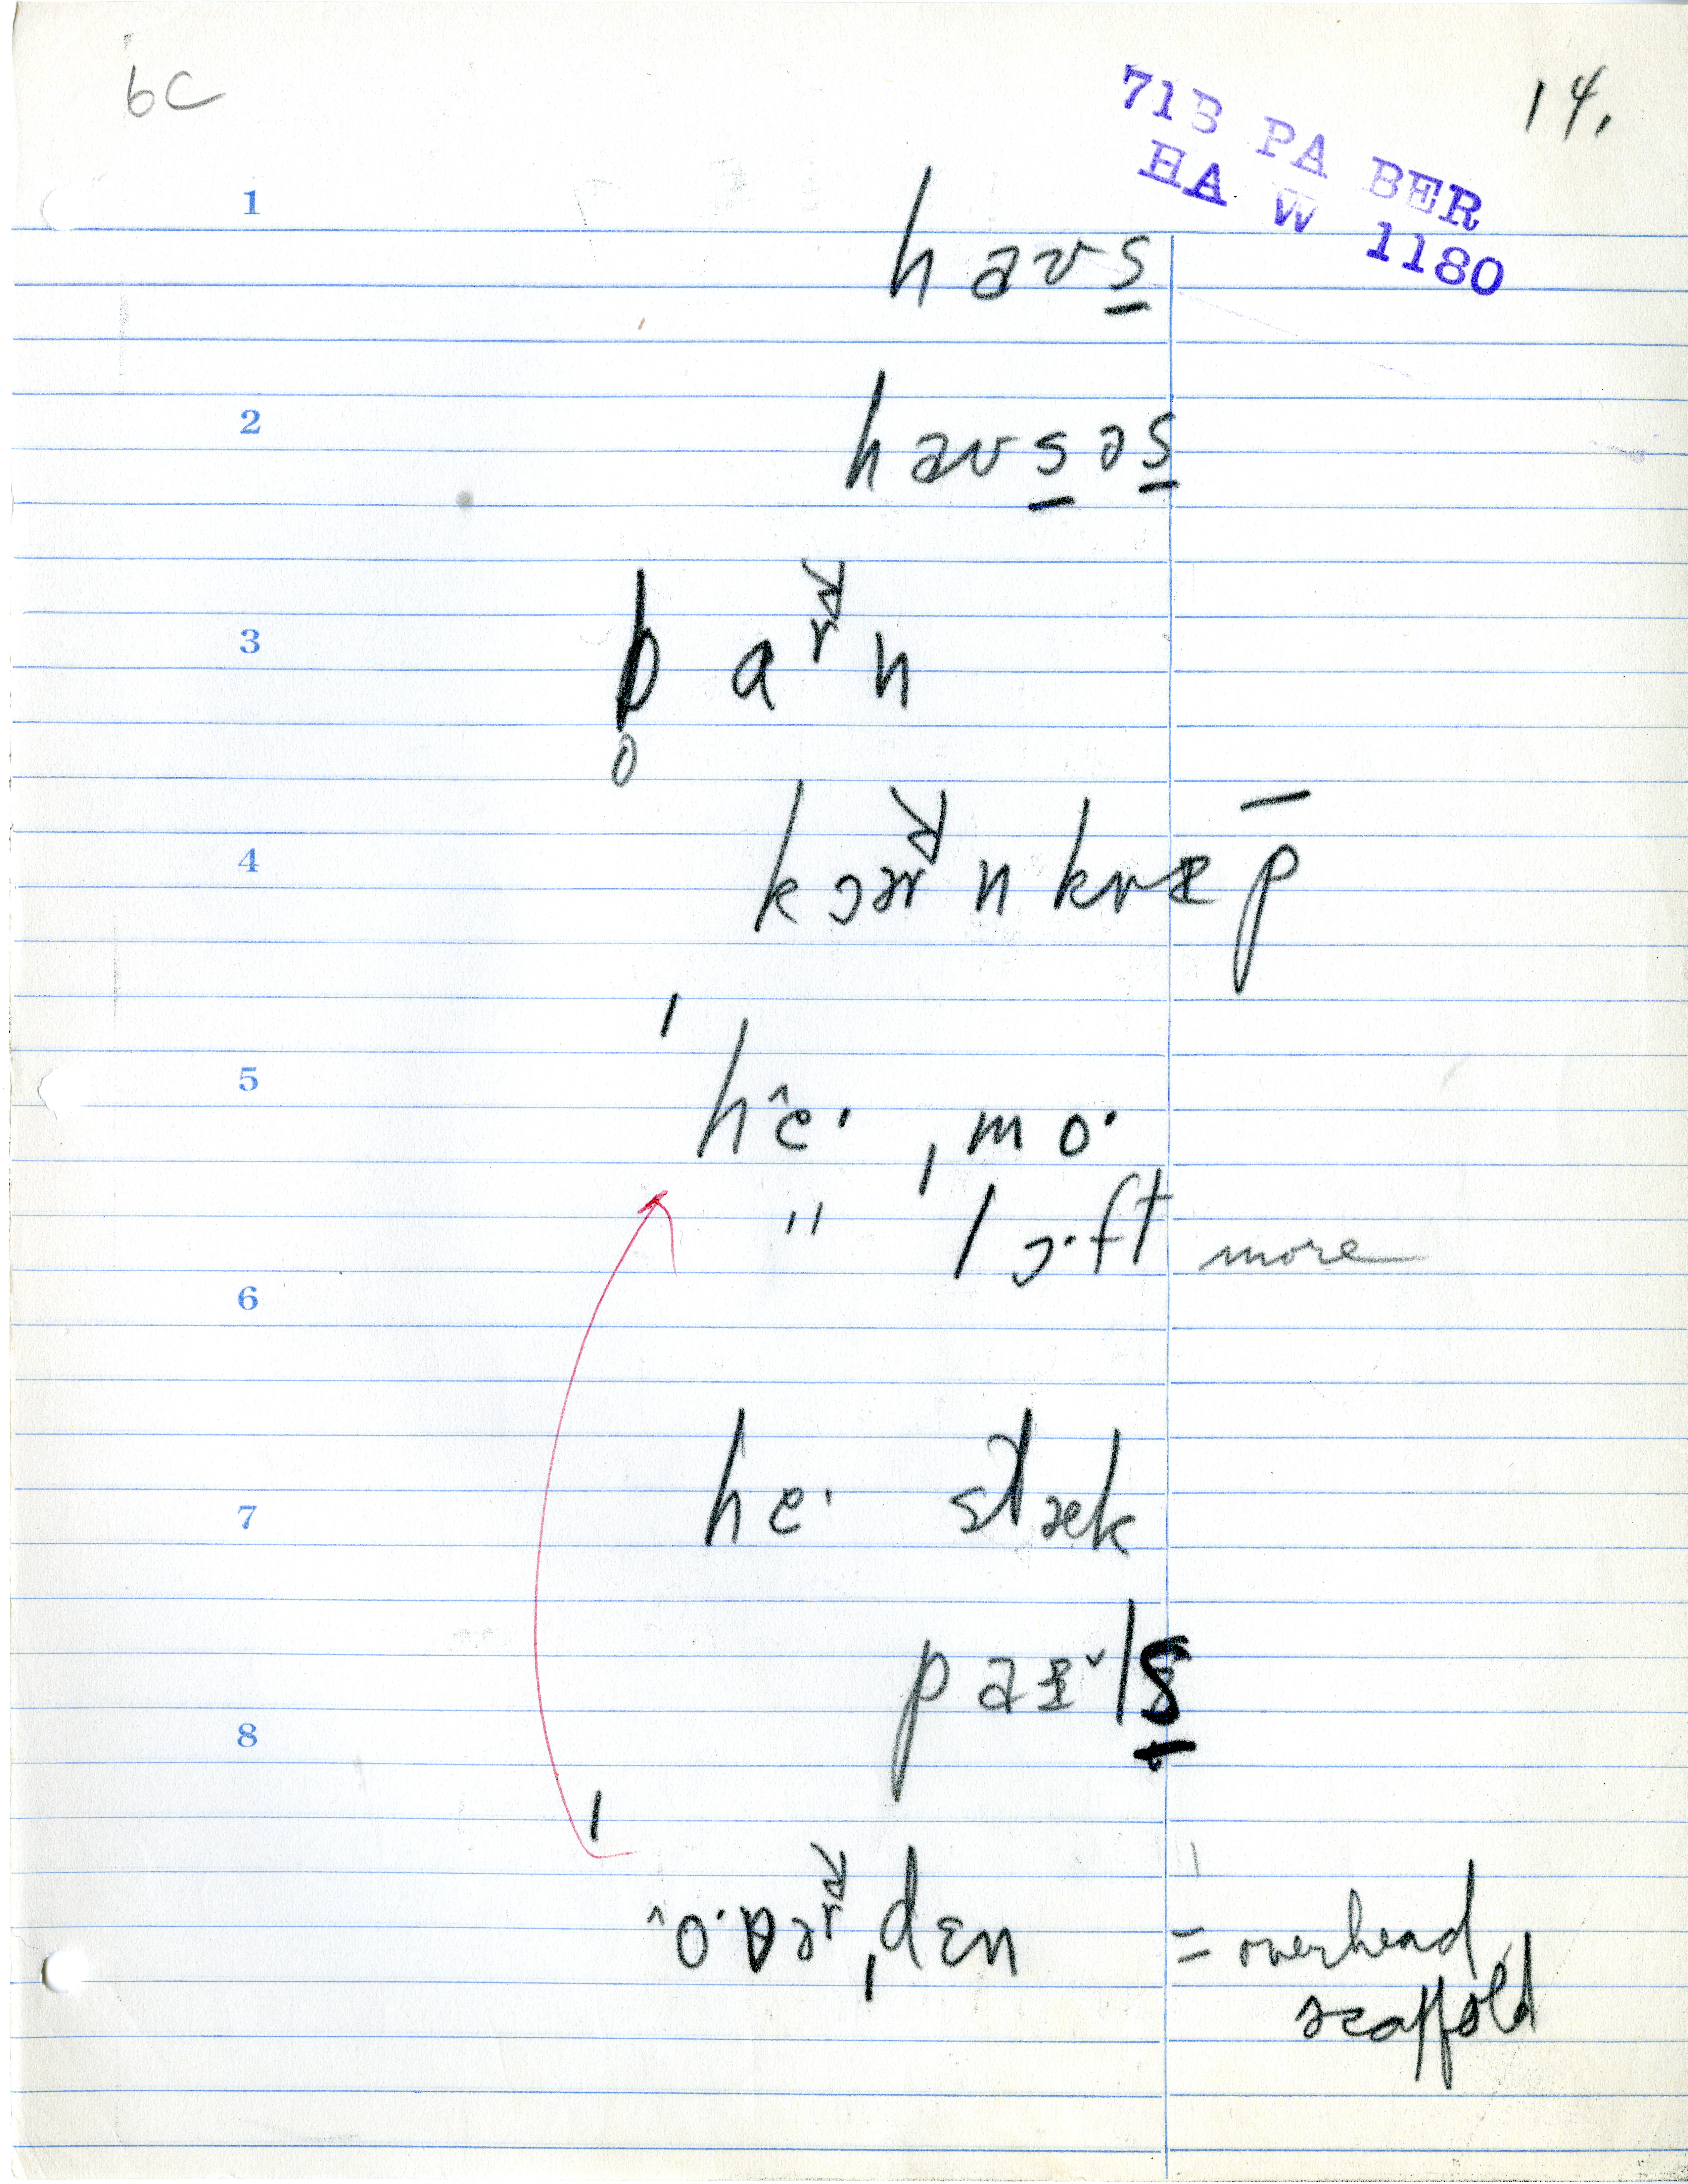 6C
14.
71B PA BER
HA W 1180
1
haʊs̱
2
haʊs̱əs̱
3
b̥aʳn
4
kɔəʳnkræp̄
5
ˈhe̯· ˌmo·
" lɔ·ft more
6
7
he· stæk
paɪ̆ls̱
8
ˈo·vəʳˌdɛn = overhead
scaffold